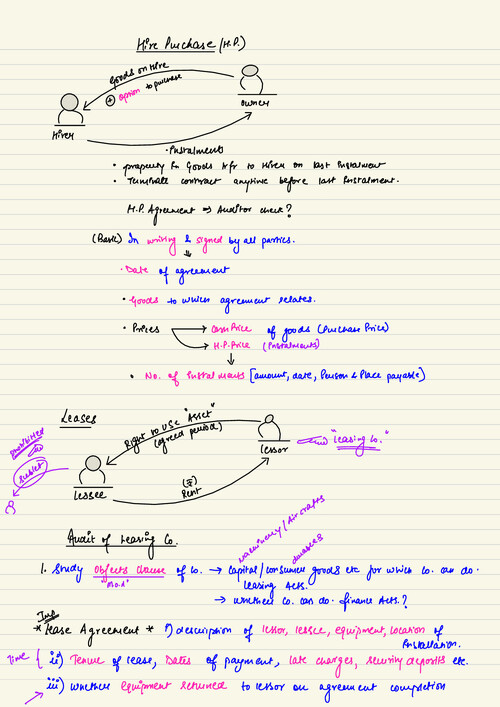 Hire Purchase (H.P.)
Goods on Hire
+ option to purchase
owner
Hirer
• Instalments
• property in Goods trfr to Hirer on last instalment
• Terminate contract anytime before last instalment.
H.P. Agreement ⇒ Auditor check?
(Basic) In writing & signed by all parties.
• Date of agreement
• Goods to which agreement relates.
• Prices → Cash Price of goods (Purchase Price)
→ H.P. Price (Instalments)
• No. of instalments [amount, date, Person & Place payable]
Leases
Right to use "Asset"
(agreed period)
lessor
"Leasing Co."
prohibited
sublet
lessee
(₹)
Rent
Audit of Leasing Co.
machinery / Aircrafts
durables
1. Study objects clause of Co. → Capital/consumer goods etc for which Co. can do
"M.O.A" leasing Acts.
→ whether Co. can do finance Acts.?
Imp
* Lease Agreement * i) description of lessor, lessee, equipment, location of
installation.
Time { ii) Tenure of lease, Dates of payment, late charges, security deposits etc.
iii) whether equipment returned to lessor on agreement completion